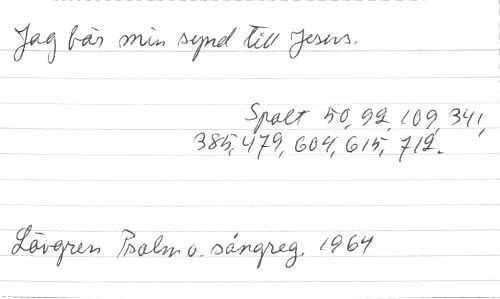 Jag bär min synd till Jesus.
Spalt 50, 92, 109, 341,
385, 479, 604, 615, 712.
Lövgren Psalm o. sångreg. 1964